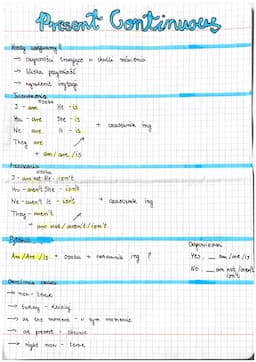 Present Continuous
Kiedy używamy?
→ czynności trwające w chwili mówienia
→ bliska przyszłość
→ wyrażenie irytacji
Twierdzenia
osoba
I - am He - is
You - are She - is
We - are It - is + czasownik ing
They are
+ am / are / is
Przeczenia
osoba
I - am not He - isn't
You - aren't She - isn't
We - aren't It - isn't + czasownik ing
They - aren't
+ am not / aren't / isn't
Pytania
Odpowiedzi
Am / Are / Is + osoba + czasownik ing ? Yes, __ am / are / is
No, __ am not / aren't / isn't
Określenia czasu
→ now - teraz
→ today - dzisiaj
→ at the moment - w tym momencie
→ at present - obecnie
→ right now - teraz